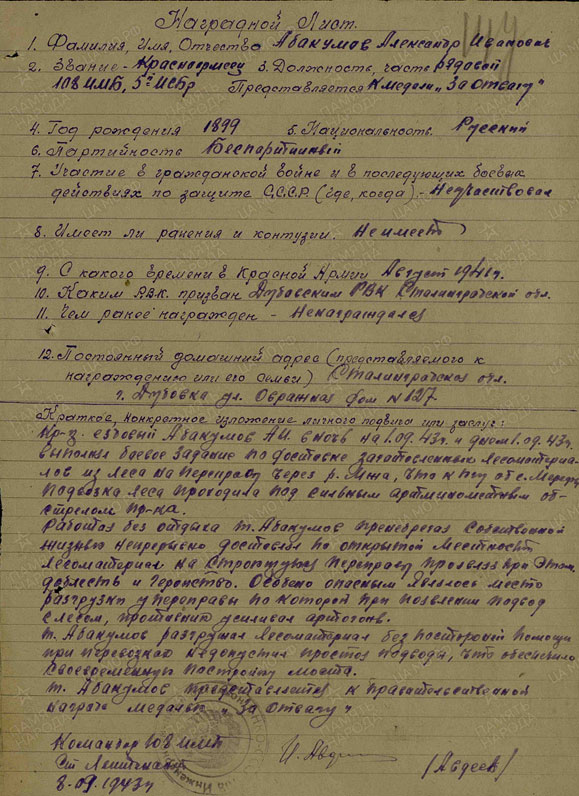 Наградной Лист.
1. Фамилия, Имя, Отчество Абакумов Александр Иванович
2. Звание - Красноармеец 3. Должность, часть рядовой
108 ИМБ, 5 ИСБр Представляется К медали „За отвагу"
4. Год рождения 1899 5. Национальность Русский
6. Партийность Беспартийный
7. Участие в гражданской войне и в последующих боевых
действиях по защите С.С.С.Р. (где, когда) - Неучаствовал
8. Имеет ли ранения и контузии. Неимеет
9. С какого времени в Красной Армии Август 1941 г.
10. Каким Р.В.К. призван Дубовским РВК Сталинградской обл.
11. Чем ранее награжден - Ненаграждался
12. Постоянный домашний адрес (представляемого к
награждению или его семьи) Сталинградская обл.
г. Дубовка ул. Овражная дом №127
Краткое, конкретное изложение личного подвига или заслуг:
Кр-ц. ездовой Абакумов АИ. в ночь на 1.09.43г. и днем 1.09.43г.
выполнял боевое задание по доставке заготовленных лесоматериа-
лов из леса на переправу через р. Мжа, что к от с. Мерефа
Подвозка леса проходила под сильным артминометным об-
стрелом пр-ка.
Работая без отдыха т. Абакумов пренебрегая собственной
жизнью непрерывно доставлял по открытой местности
лесоматериал на переправу проявляя при этом
доблесть и геройство. Особено опасным являлось место
разгрузки у переправы по которой при появлении подвод
с лесом, противник усиливал артогонь.
т. Абакумов разгружал лесоматериал без посторонней помощи
при перевозках недопускал простоя подводы, что обеспечило
своевременную постройку моста.
т. Абакумов представляется к правительственной
награде медалью „За отвагу"
Командир 108 ИМБ
Ст Лейтенант
8.09.1943г
(Авдеев)